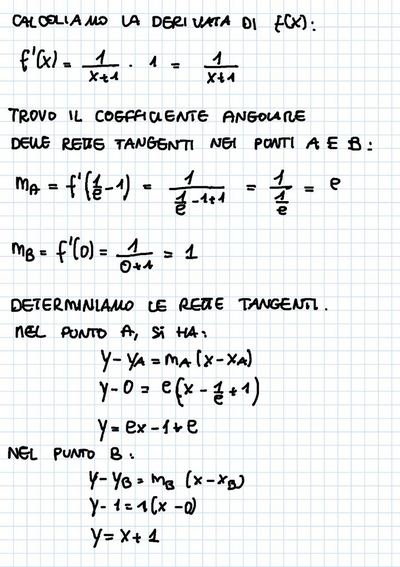 CALCOLIAMO LA DERIVATA DI f(x):
f'(x) = 1/(x+1) · 1 = 1/(x+1)
TROVO IL COEFFICIENTE ANGOLARE
DELLE RETTE TANGENTI NEI PUNTI A E B:
m_A = f'(1/e - 1) = 1/(1/e - 1 + 1) = 1/(1/e) = e
m_B = f'(0) = 1/(0+1) = 1
DETERMINIAMO LE RETTE TANGENTI.
NEL PUNTO A, SI HA:
y - y_A = m_A (x - x_A)
y - 0 = e(x - 1/e + 1)
y = ex - 1 + e
NEL PUNTO B:
y - y_B = m_B (x - x_B)
y - 1 = 1(x - 0)
y = x + 1